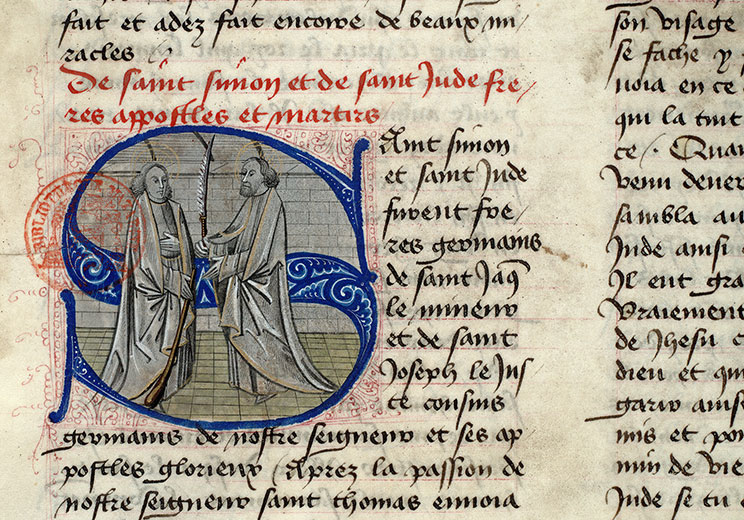 fait et adez fait encore de beaux mi
racles
De saint simon et de saint Jude fre
res appostles et martirs
Saint simon
et saint Jude
furent fre
res germains
de saint Jaq
le mineur
et de saint
Joseph le Jus
te cousins
germains de nostre seigneur et ses ap
postles glorieux Aprez la passion de
nostre seigneur saint thomas enuoia
son visage
se fache
uoia en ce
qui la
ce
venu
sambla au
Jude ainsi
Il eut gra
Vraiement
de Jhesu
dieu et qui
mis et
de vie
Jude se tu